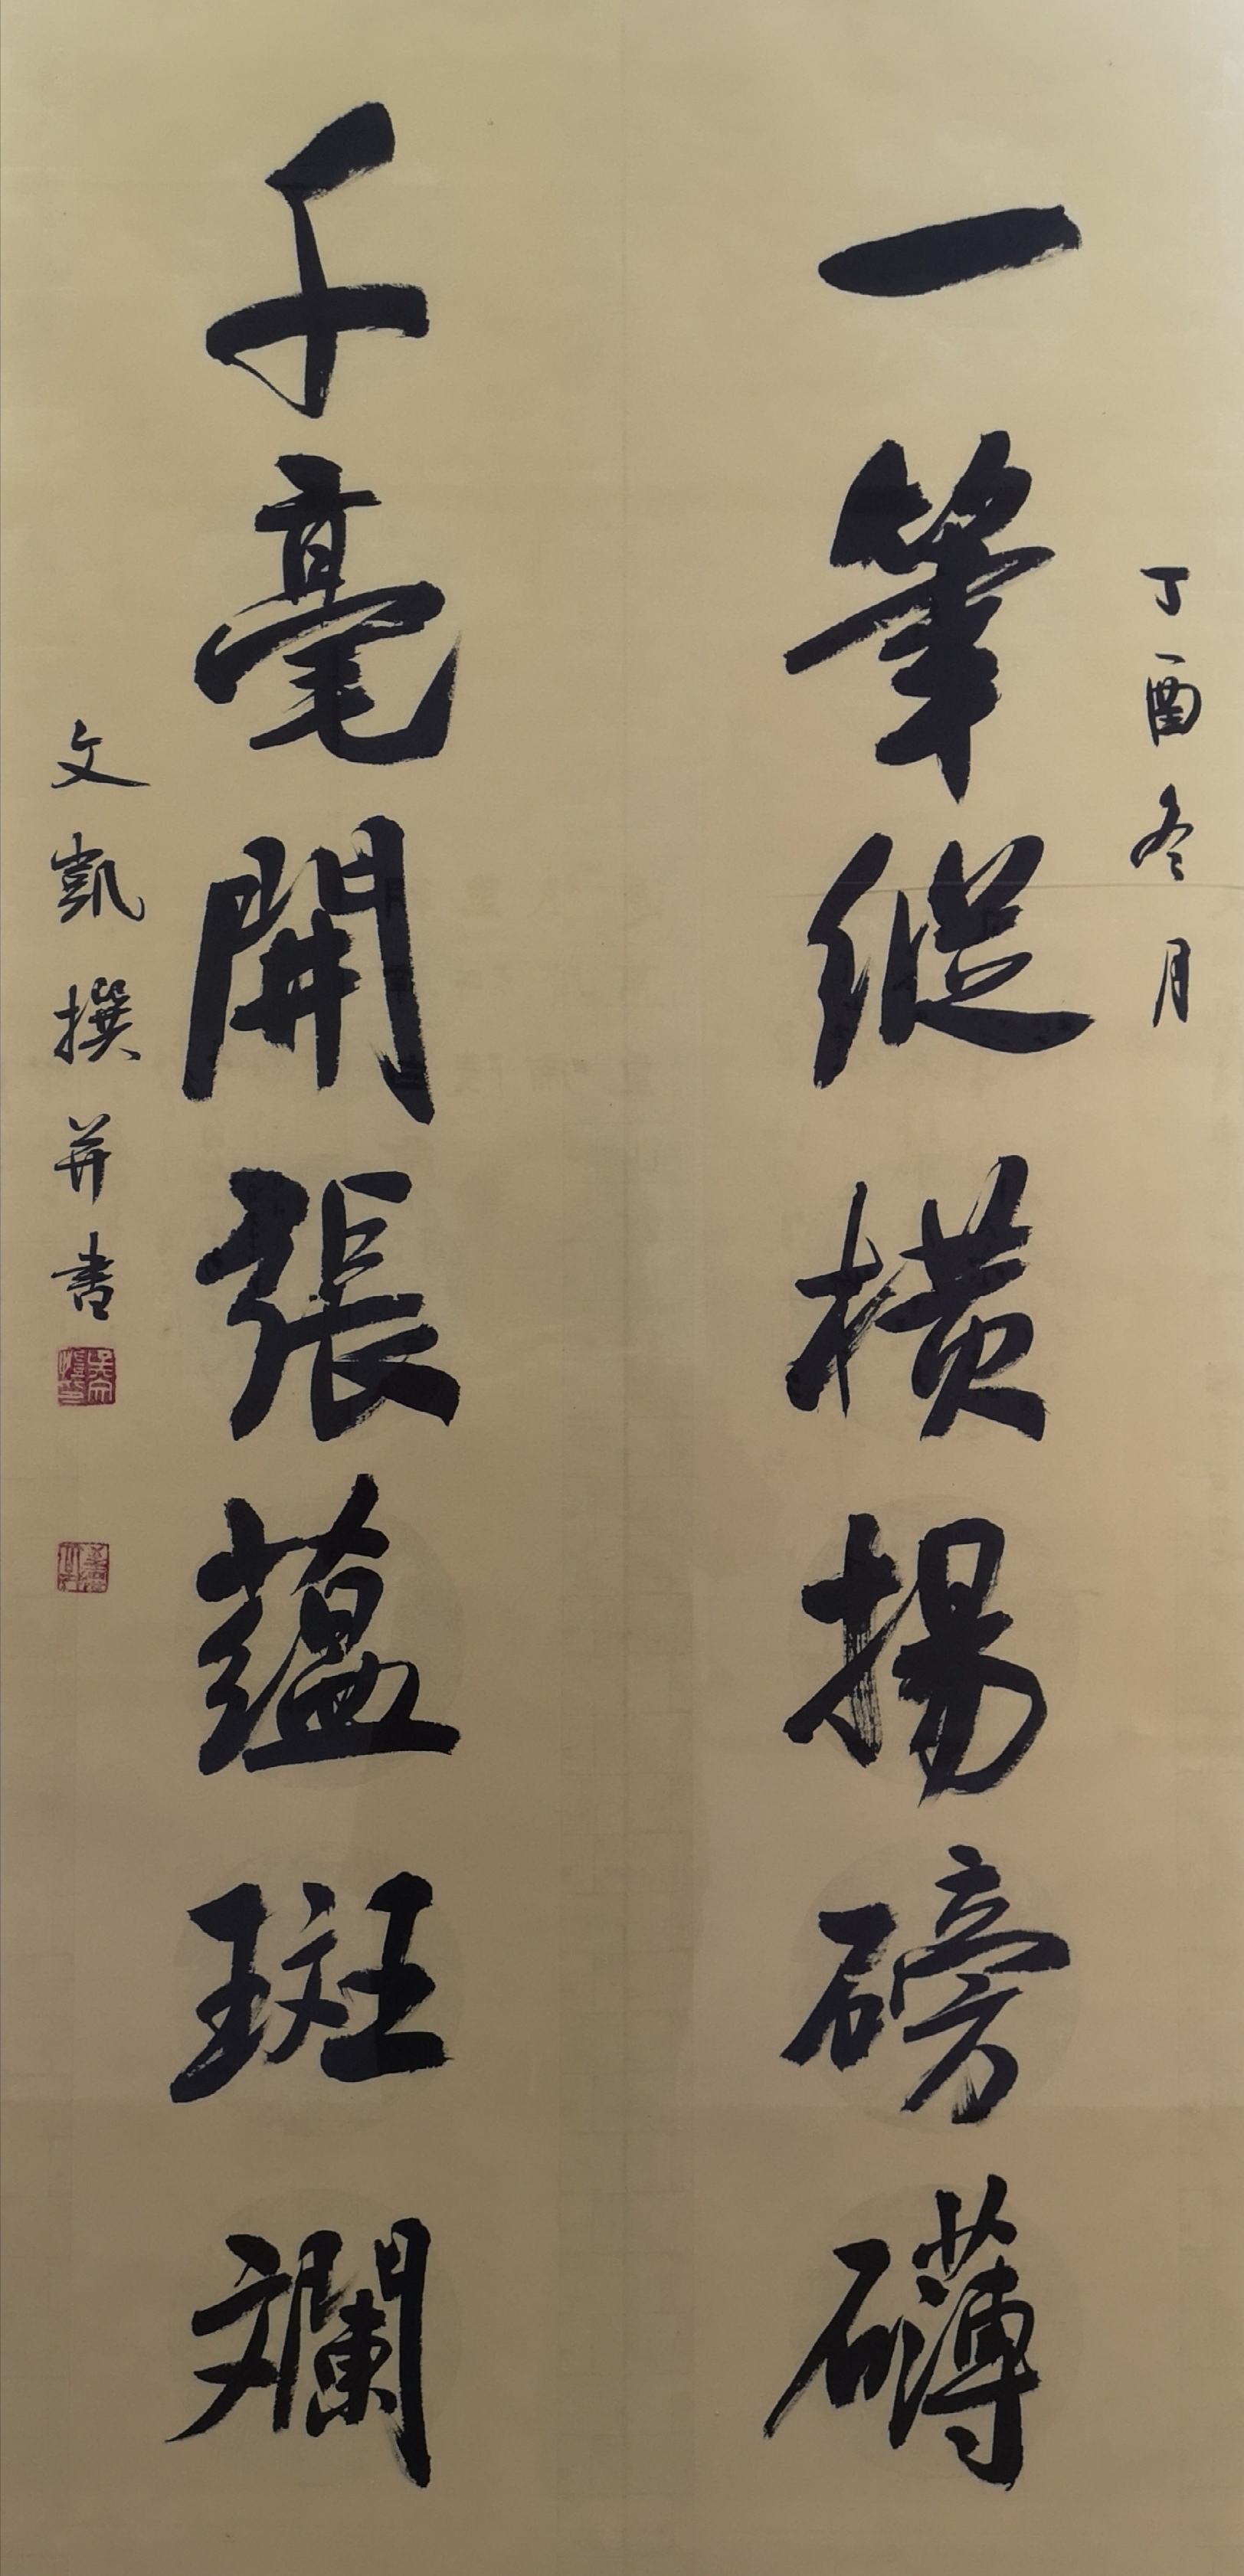 丁酉冬月
一筆縱橫揚磅礴
千毫開張蘊斑斕
文凱撰并書